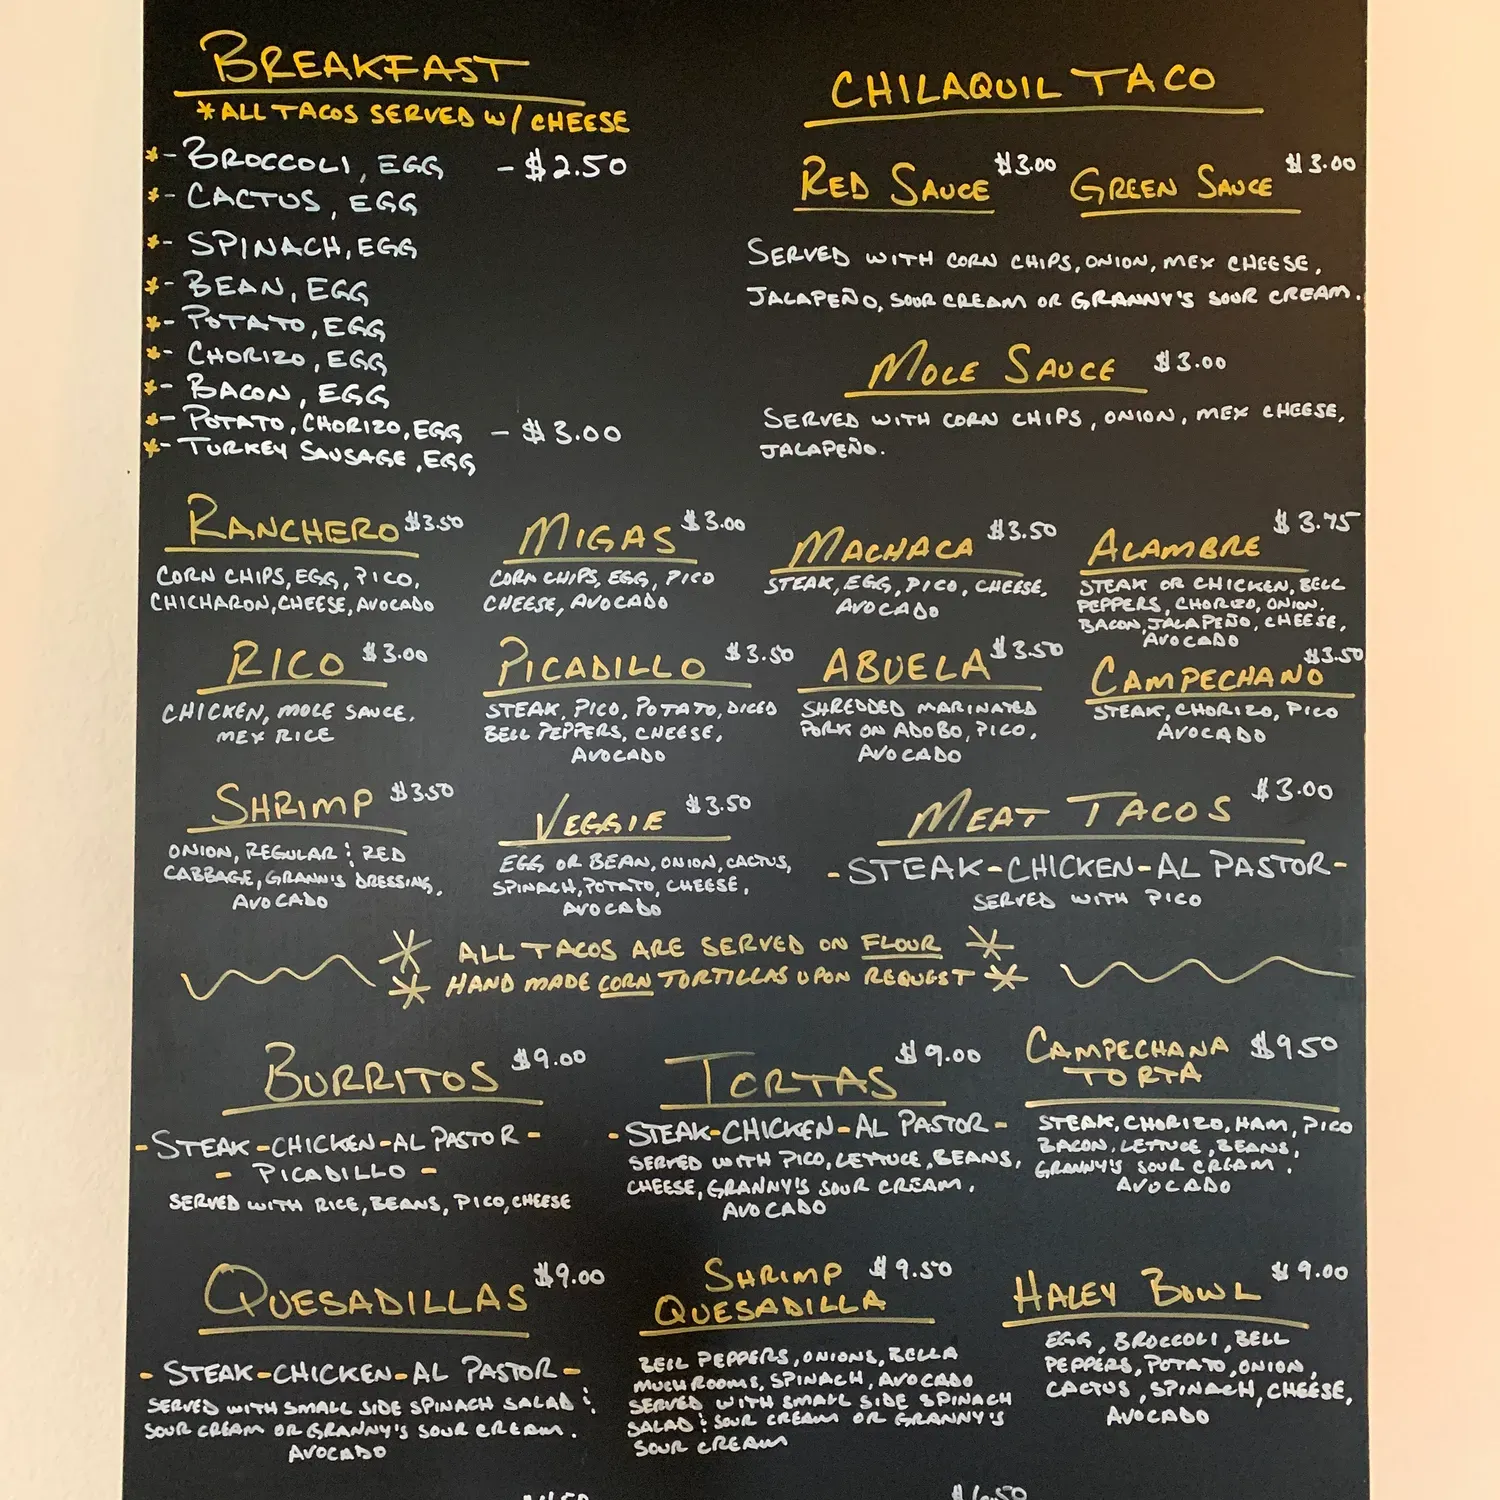 BREAKFAST
*ALL TACOS SERVED W/ CHEESE
*- BROCCOLI, EGG - $2.50
*- CACTUS, EGG
*- SPINACH, EGG
*- BEAN, EGG
*- POTATO, EGG
*- CHORIZO, EGG
*- BACON, EGG
*- POTATO, CHORIZO, EGG - $3.00
*- TURKEY SAUSAGE, EGG
CHILAQUIL TACO
RED SAUCE $3.00 GREEN SAUCE $3.00
SERVED WITH CORN CHIPS, ONION, MEX CHEESE,
JALAPEÑO, SOUR CREAM OR GRANNY'S SOUR CREAM.
MOLE SAUCE $3.00
SERVED WITH CORN CHIPS, ONION, MEX CHEESE,
JALAPEÑO.
RANCHERO $3.50
CORN CHIPS, EGG, PICO,
CHICHARON, CHEESE, AVOCADO
MIGAS $3.00
CORN CHIPS, EGG, PICO
CHEESE, AVOCADO
MACHACA $3.50
STEAK, EGG, PICO, CHEESE,
AVOCADO
ALAMBRE $3.75
STEAK OR CHICKEN, BELL
PEPPERS, CHORIZO, ONION,
BACON, JALAPEÑO, CHEESE,
AVOCADO
RICO $3.00
CHICKEN, MOLE SAUCE,
MEX RICE
PICADILLO $3.50
STEAK, PICO, POTATO, DICED
BELL PEPPERS, CHEESE,
AVOCADO
ABUELA $3.50
SHREDDED MARINATED
PORK ON ADOBO, PICO,
AVOCADO
CAMPECHANO $3.50
STEAK, CHORIZO, PICO
AVOCADO
SHRIMP $3.50
ONION, REGULAR & RED
CABBAGE, GRANN'S DRESSING,
AVOCADO
VEGGIE $3.50
EGG OR BEAN, ONION, CACTUS,
SPINACH, POTATO, CHEESE,
AVOCADO
MEAT TACOS $3.00
-STEAK-CHICKEN-AL PASTOR-
SERVED WITH PICO
* ALL TACOS ARE SERVED ON FLOUR *
* HAND MADE CORN TORTILLAS UPON REQUEST *
BURRITOS $9.00
-STEAK-CHICKEN-AL PASTOR-
- PICADILLO -
SERVED WITH RICE, BEANS, PICO, CHEESE
TORTAS $9.00
-STEAK-CHICKEN-AL PASTOR-
SERVED WITH PICO, LETTUCE, BEANS,
CHEESE, GRANNY'S SOUR CREAM,
AVOCADO
CAMPECHANA $9.50
TORTA
STEAK, CHORIZO, HAM, PICO
BACON, LETTUCE, BEANS,
GRANNY'S SOUR CREAM,
AVOCADO
QUESADILLAS $9.00
- STEAK-CHICKEN-AL PASTOR-
SERVED WITH SMALL SIDE SPINACH SALAD &
SOUR CREAM OR GRANNY'S SOUR CREAM.
AVOCADO
SHRIMP $9.50
QUESADILLA
BELL PEPPERS, ONIONS, BELLA
MUCHROOMS, SPINACH, AVOCADO
SERVED WITH SMALL SIDE SPINACH
SALAD & SOUR CREAM OR GRANNY'S
SOUR CREAM
HALEY BOWL $9.00
EGG, BROCCOLI, BELL
PEPPERS, POTATO, ONION,
CACTUS, SPINACH, CHEESE,
AVOCADO